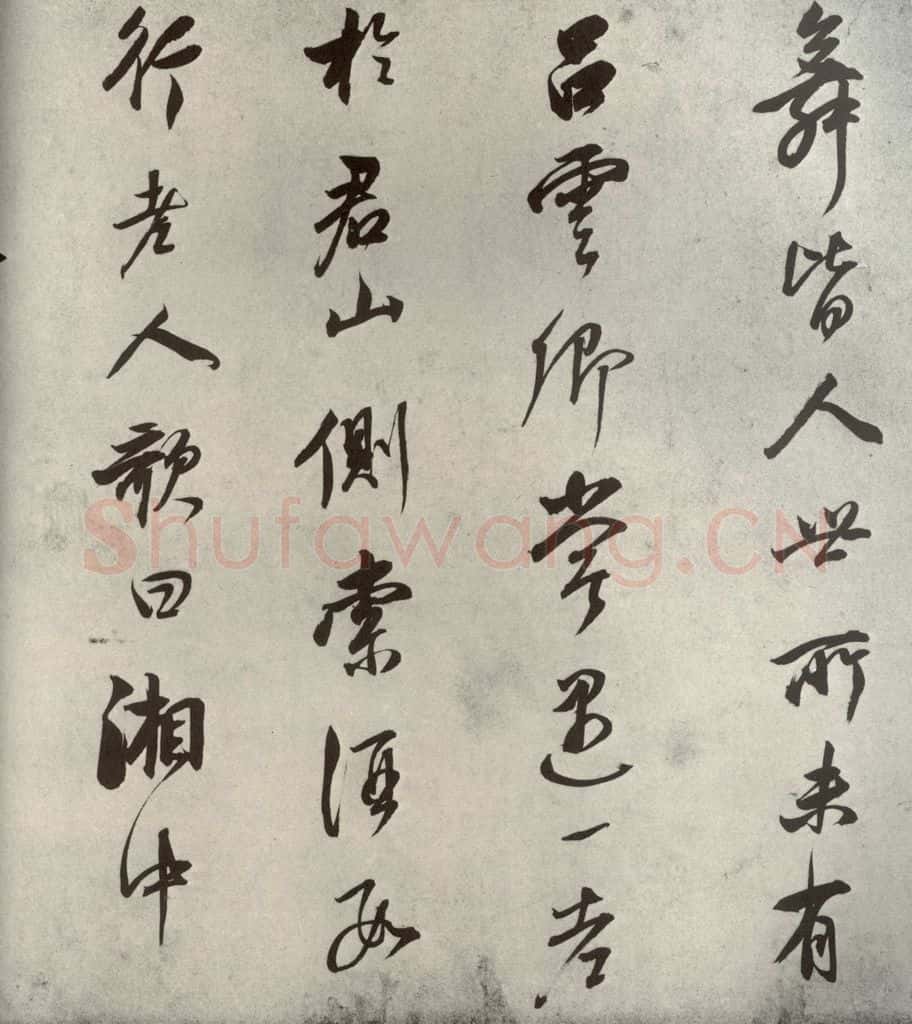 舞皆人世所未有
吕雲卿嘗遇一老
於君山側索酒數
行老人歌曰湘中
Shufawang.CN